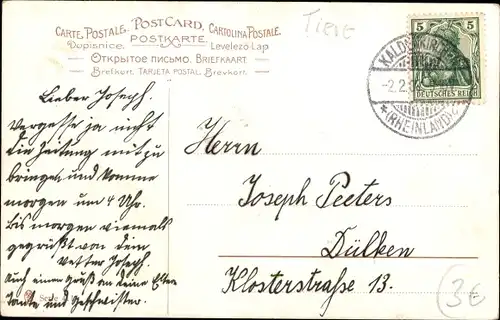 Tiere
CARTE POSTALE. POSTCARD, CARTOLINA POSTALE.
Dopisnice. POSTKARTE. Levelező-Lap
ОТКРЫТОЕ ПИСЬМО. BRIEFKAART
Brefkort. TARJETA POSTAL. Brevkort.
5 5
DEUTSCHES REICH
KALDENKIRCHEN
-2.2.
* (RHEINLAND)
Lieber Joseph.
Vergesse ja nicht
die Zeitung mit zu
bringen und komme
morgen um 4 Uhr.
Bis morgen viemals
gegrüßt von dein
Vetter Joseph.
Auch einen gruß an deine Elten
Tante und Geschwister.
Herrn
Joseph Peeters
Dülken
Klosterstraße 13.
Serie
3€